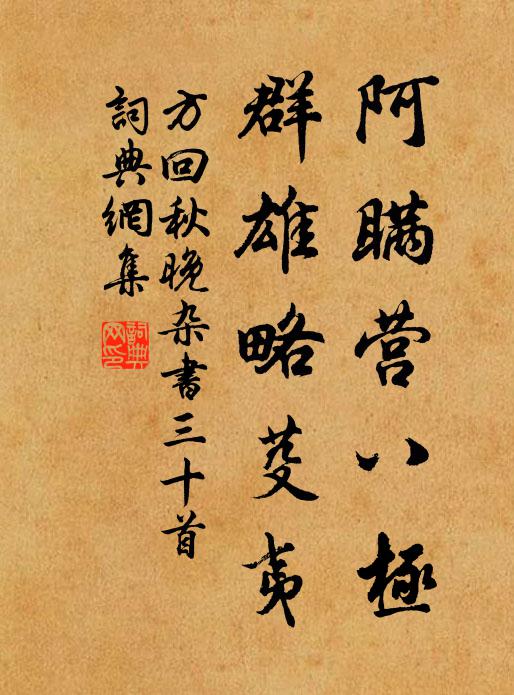 阿瞞营八極
群雄略芟夷
方回秋晚杂書三十首
詞典網集
詞典网印